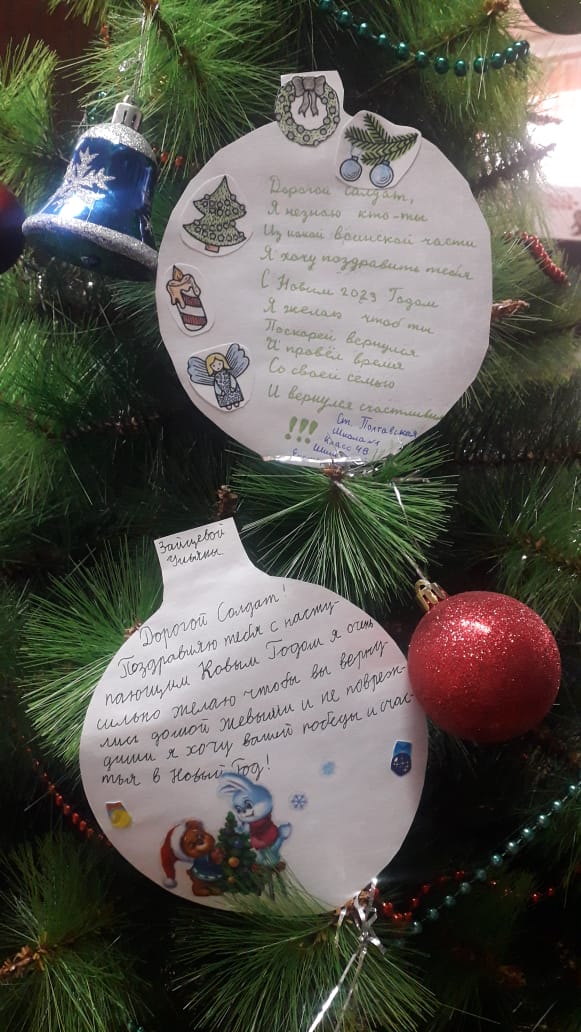 Дорогой Солдат,
Я незнаю кто-ты
Из какой воинской части
Я хочу поздравить тебя
С Новым 2023 Годом
Я желаю чтоб ты
Поскарей вернулся
И провёл время
Со своей семью
И вернулся счастливым
!!!
Ст. Полтавская
Школа
Класс 4В
Зайцевой
Ульяны
Дорогой Солдат!
Поздравляю тебя с насту-
пающим Новым Годом я очень
сильно желаю чтобы вы верну-
лись домой живыми и не повреж-
дими я хочу вашей победы и счас-
тья в Новый Год!